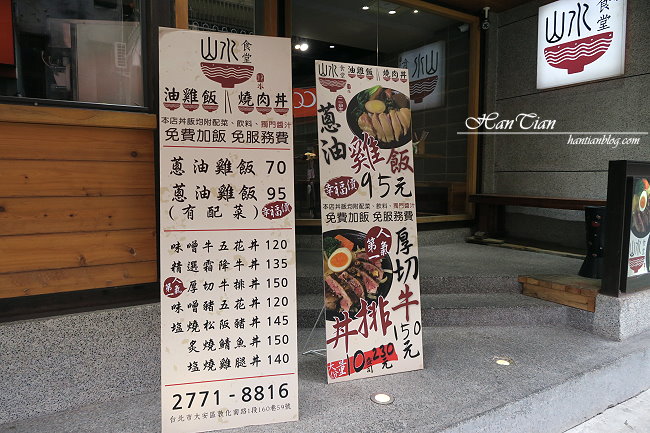 山水食堂
油雞飯 燒肉丼
本店丼飯均附配菜、飲料、獨門醬汁
免費加飯 免服務費
蔥油雞飯 70
蔥油雞飯 95
(有配菜) 幸福價
味噌牛五花丼 120
精選霜降牛丼 135
人氣第一 厚切牛排丼 150
味噌豬五花丼 120
塩燒松阪豬丼 145
炙燒鯖魚丼 150
塩燒雞腿丼 140
2771-8816
台北市大安區敦化南路1段160巷59號
山水食堂 油雞飯 燒肉丼
蔥油雞飯
幸福價 95元
本店丼飯均附配菜、飲料、獨門醬汁
免費加飯 免服務費
人氣第一
厚切牛排丼
150元
大份量 10盎司 230元
山水食堂
山水
山水
HanTian
hantianblog.com